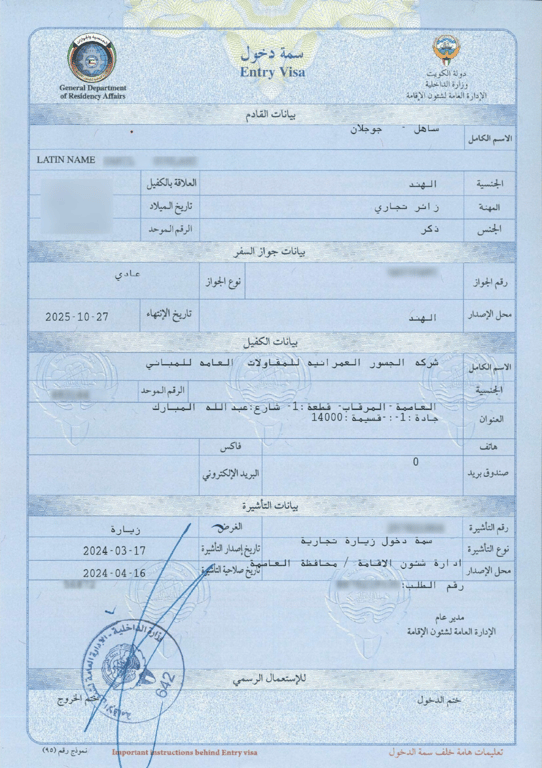 دولة الكويت
وزارة الداخلية
الإدارة العامة لشئون الإقامة
سمة دخول
Entry Visa
General Department
of Residency Affairs
بيانات القادم
الاسم الكامل ساهل - جوجلان
LATIN NAME
الجنسية الهند العلاقة بالكفيل
المهنة زائر تجاري تاريخ الميلاد
الجنس ذكر الرقم الموحد
بيانات جواز السفر
رقم الجواز نوع الجواز عادي
محل الإصدار الهند تاريخ الإنتهاء 2025-10-27
بيانات الكفيل
الاسم الكامل شركه الجسور العمرانيه للمقاولات العامه للمباني
الجنسية الرقم الموحد
العنوان العاصمة-المرقاب- قطعة:1- شارع:عبدالله المبارك
جادة:1-:-قسيمة:14000
هاتف فاكس
صندوق بريد 0 البريد الإلكتروني
بيانات التأشيرة
رقم التأشيرة الغرض زيارة
نوع التأشيرة سمة دخول زيارة تجارية تاريخ إصدار التأشيرة 2024-03-17
محل الإصدار إدارة شئون الاقامة / محافظة العاصمة تاريخ صلاحية التأشيرة 2024-04-16
رقم الطلب:
مدير عام
الإدارة العامة لشئون الإقامة
وزارة الداخلية - الإدارة العامة
642
للإستعمال الرسمي
ختم الدخول ختم الخروج
تعليمات هامة خلف سمة الدخول Important instructions behind Entry visa نموذج رقم (٩٥)